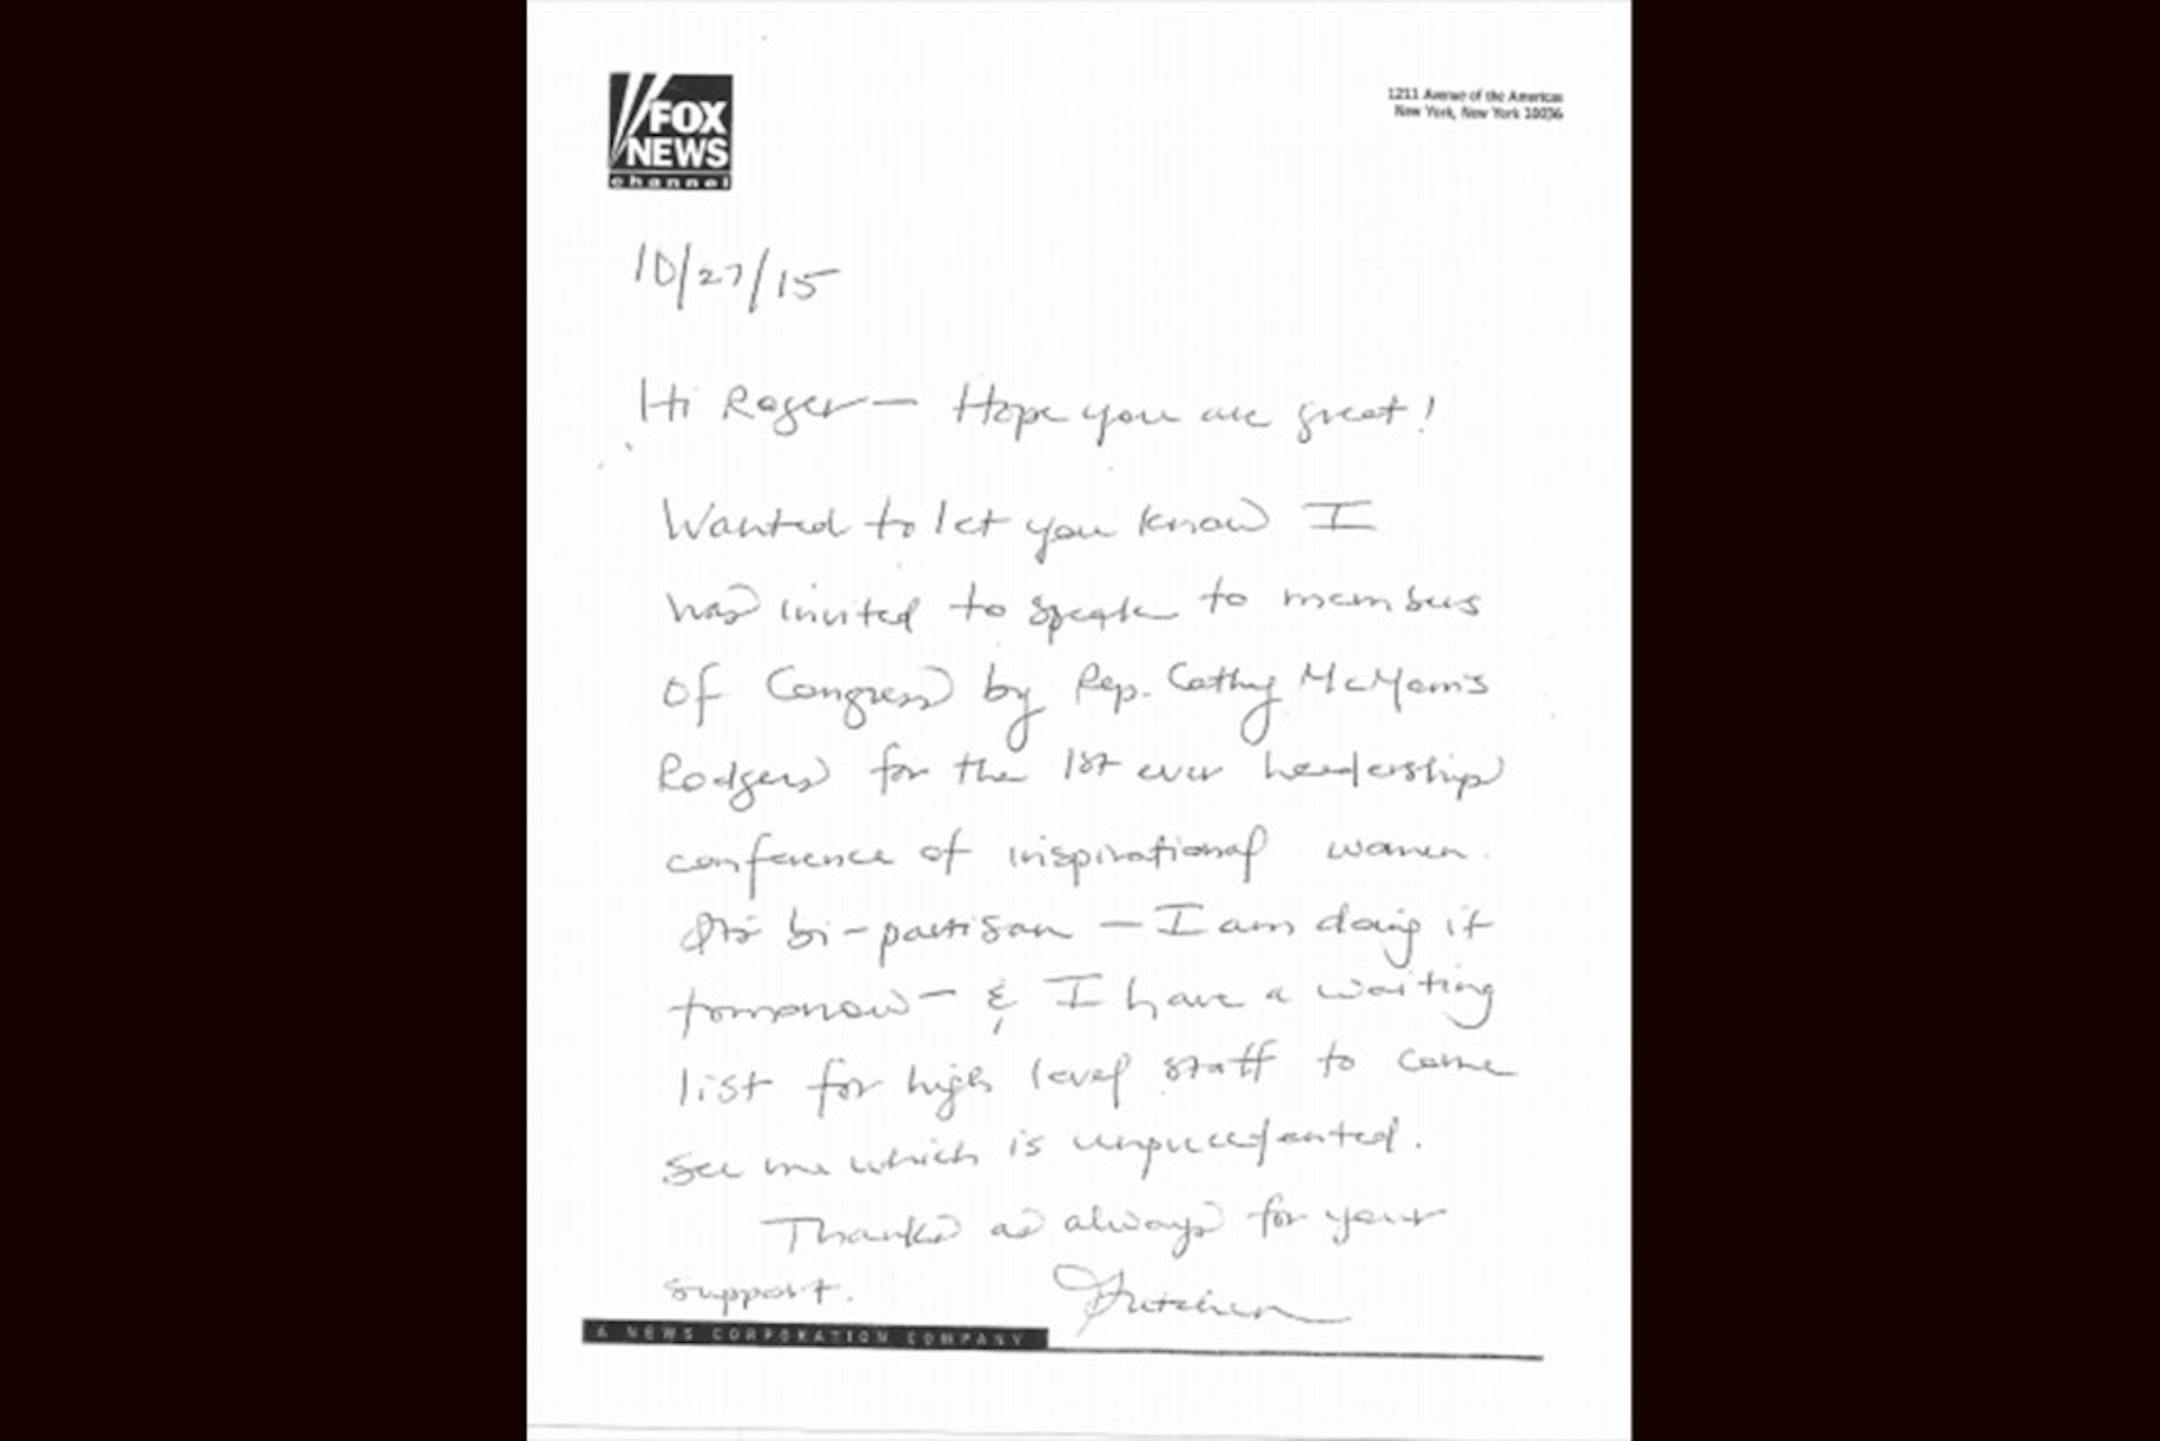 FOX
NEWS
channel
1211 Avenue of the Americas
New York, New York 10036
10/27/15
Hi Roger — Hope you are great!
Wanted to let you know I
was invited to speak to members
of Congress by Rep. Cathy McMorris
Rodgers for the 1st ever leadership
conference of inspirational women.
It's bi-partisan — I am doing it
tomorrow — & I have a waiting
list for high level staff to come
see me which is unprecedented.
Thanks as always for your
support. Gretchen
A NEWS CORPORATION COMPANY